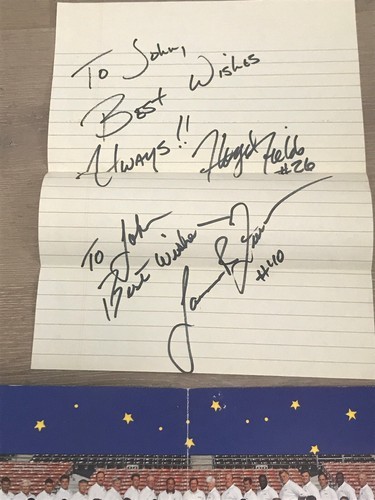 To John,
Best Wishes
Always!! Floyd Fields
#26
To John
Best Wishes
#40